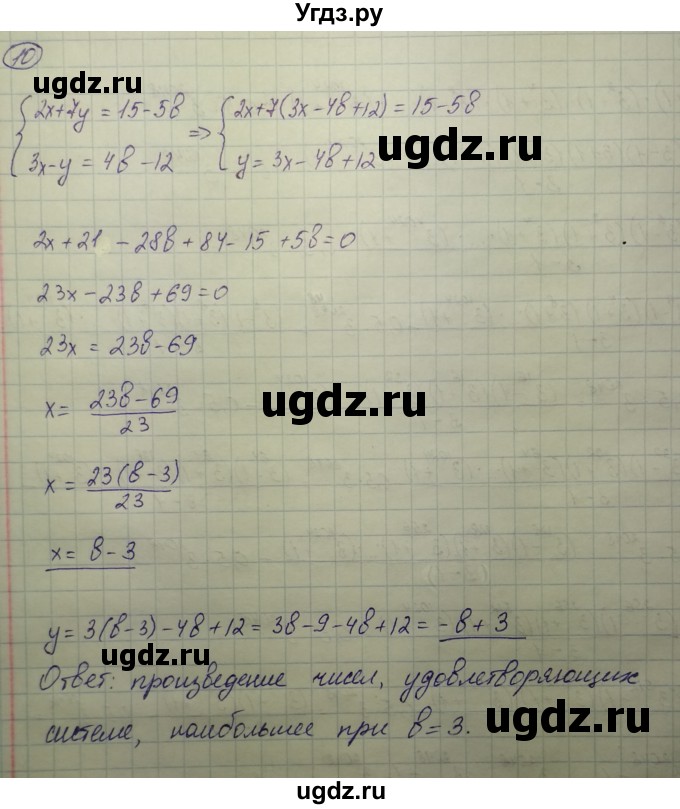 Угдз.ру
10
ugdz.ru
{2x+7y = 15-5в => {2x+7(3x-4в+12) = 15-5в
3x-y = 4в-12 y = 3x-4в+12
ugdz.ru
2x + 21 - 28в + 84 - 15 + 5в = 0
23x - 23в + 69 = 0
23x = 23в - 69
x = 23в-69/23
ugdz.ru
ugdz.ru
x = 23(в-3)/23
x = в - 3
y = 3(в-3) - 4в + 12 = 3в - 9 - 4в + 12 = -в + 3
ugdz.ru
Ответ: произведение чисел, удовлетворяющих
системе, наибольшее при в = 3.
ugdz.ru
ugdz.ru